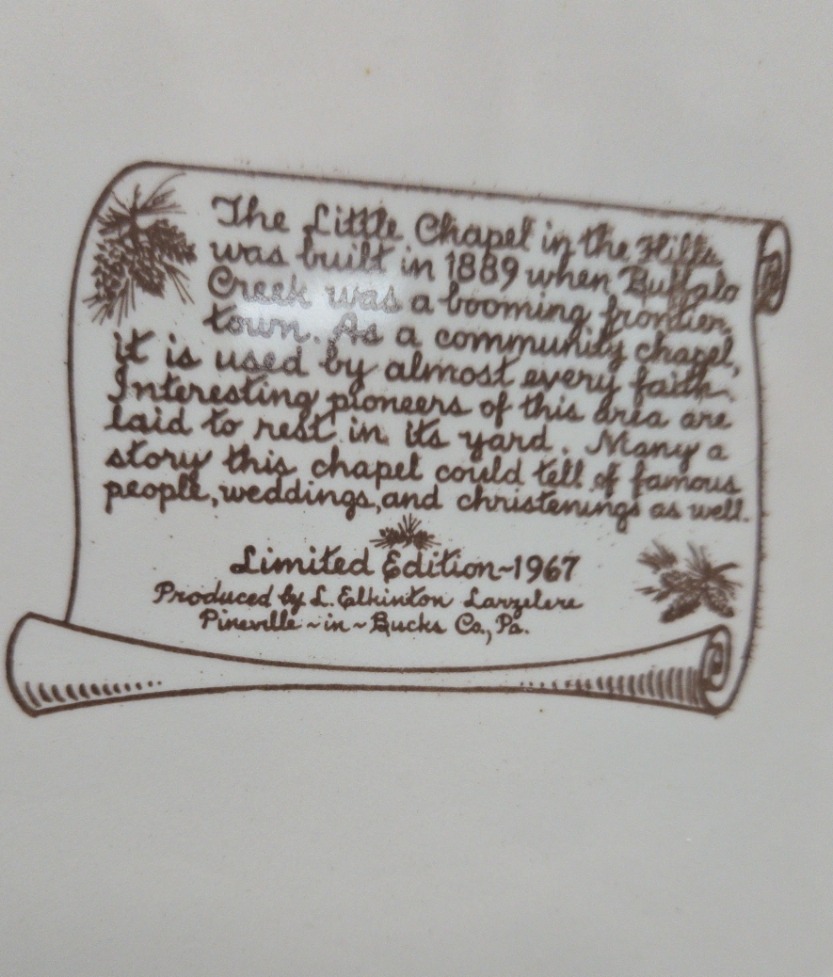 The Little Chapel in the Hills
was built in 1889 when Buffalo
Creek was a booming frontier
town. As a community chapel,
it is used by almost every faith.
Interesting pioneers of this area are
laid to rest in its yard. Many a
story this chapel could tell of famous
people, weddings, and christenings as well.
Limited Edition~1967
Produced by L. Elkinton Larzelere
Pineville ~ in ~ Bucks Co., Pa.